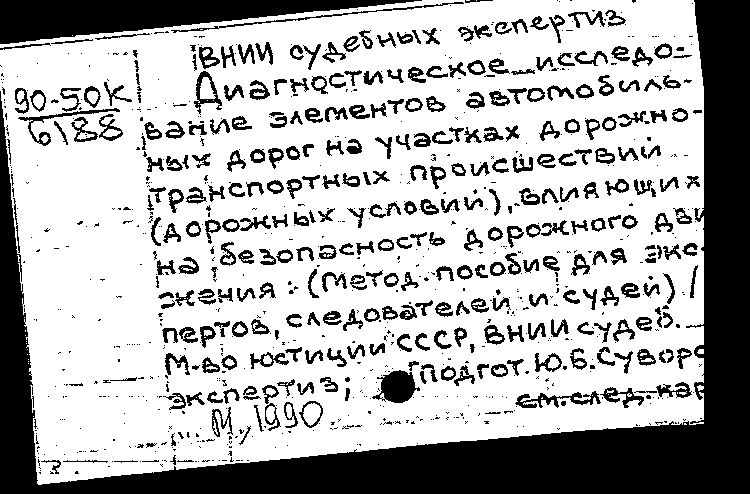 ВНИИ судебных экспертиз
90-50К
6188
Диагностическое исследо-
вание элементов автомобиль-
ных дорог на участках дорожно-
транспортных происшествий
(дорожных условий), влияющих
на безопасность дорожного дви
жения: (Метод. пособие для экс-
пертов, следователей и судей) /
М-во юстиции СССР, ВНИИ судеб.
экспертиз; [Подгот. Ю.Б. Суворо
см. след. кар
М., 1990